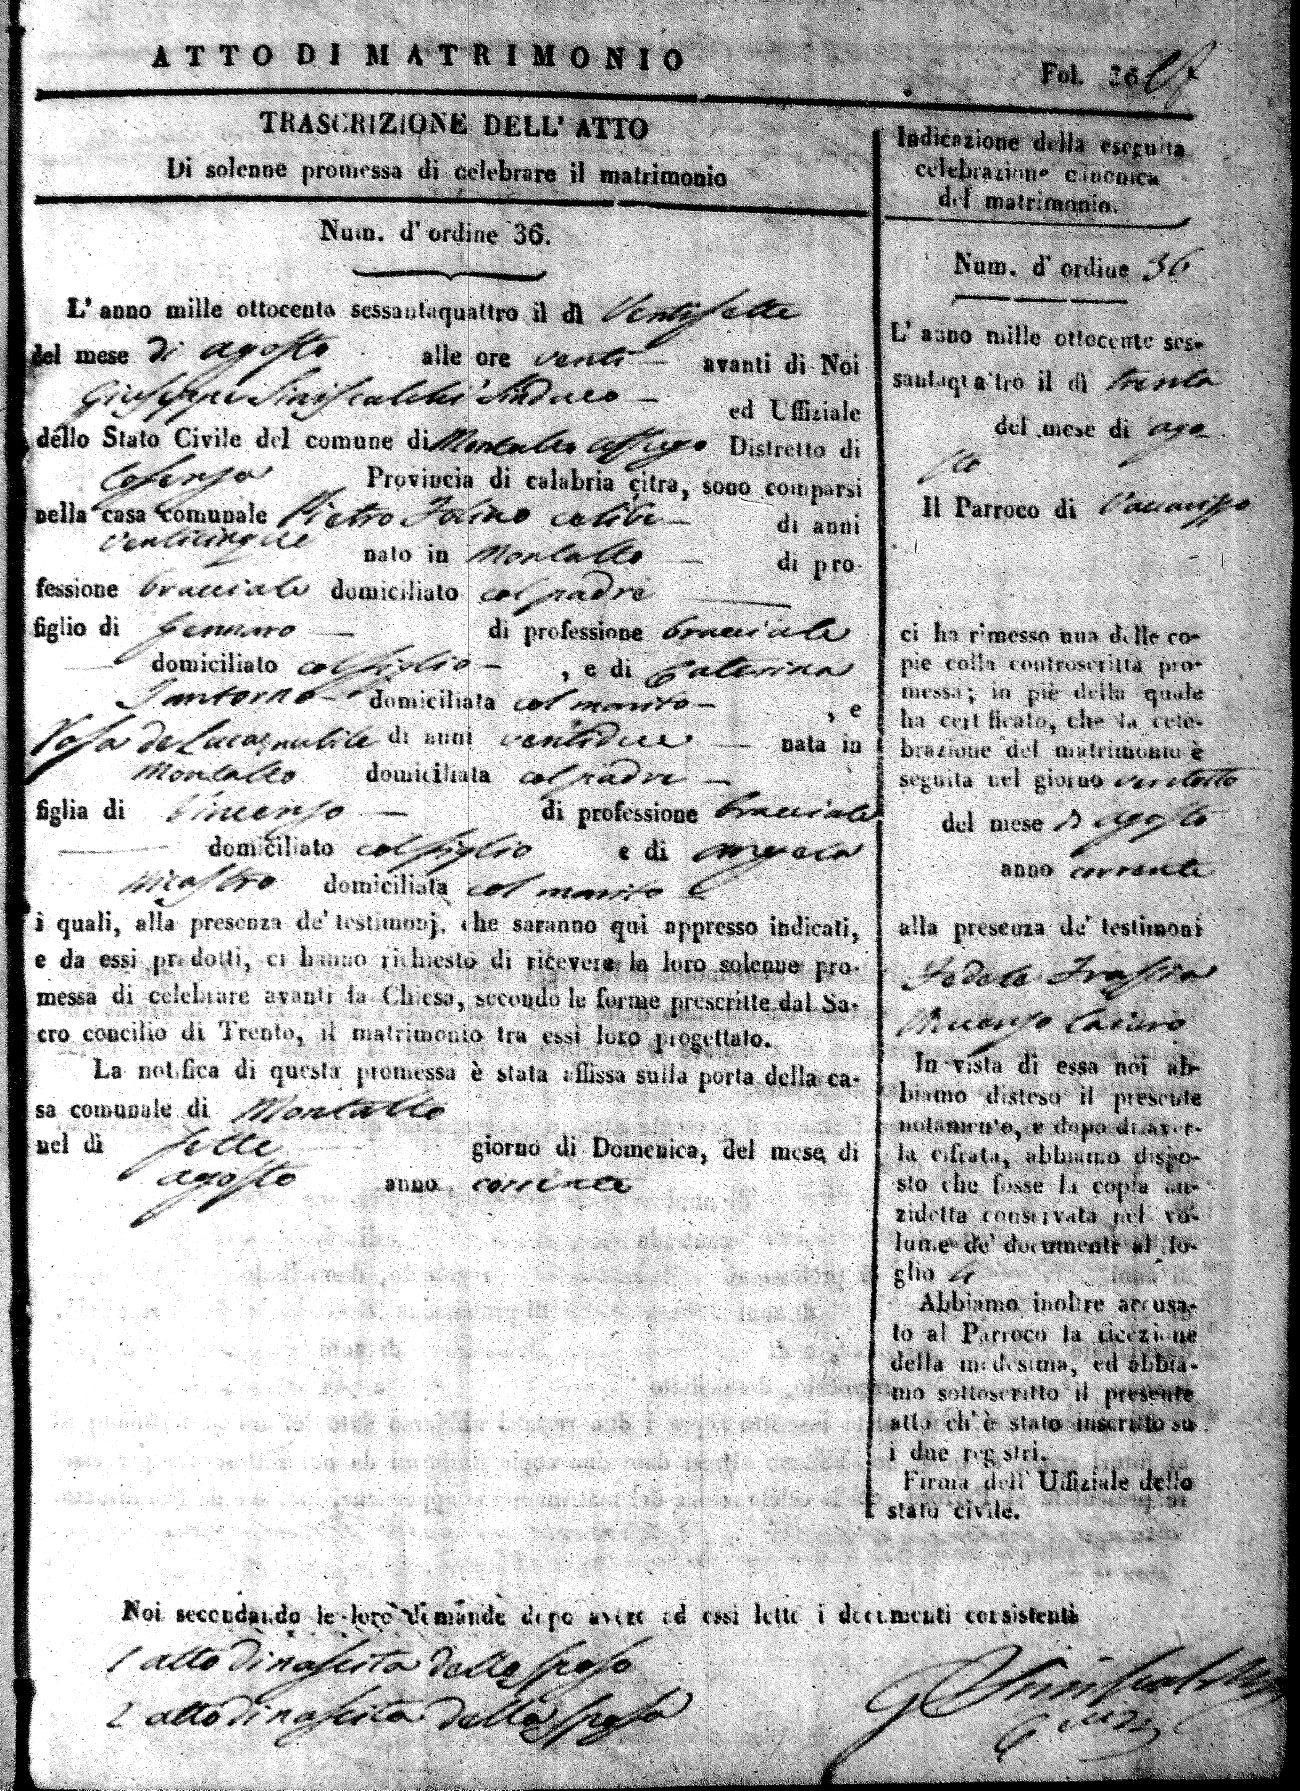 ATTO DI MATRIMONIO
Fol. 36
TRASCRIZIONE DELL' ATTO
Di solenne promessa di celebrare il matrimonio
Num. d' ordine 36.
L' anno mille ottocento sessantaquattro il dì Ventisette
del mese di agosto alle ore venti avanti di Noi
Giuseppe Siniscalchi Sindaco ed Uffiziale
dello Stato Civile del comune di Montalto Uffugo Distretto di
Cosenza Provincia di calabria citra, sono comparsi
nella casa comunale Pietro Iorino celibe di anni
venticinque nato in Montalto di pro-
fessione bracciale domiciliato col padre
figlio di Gennaro di professione bracciale
domiciliato col figlio , e di Caterina
Santorno domiciliata col marito , e
Rosa de Luca nubile di anni ventidue nata in
Montalto domiciliata col padre
figlia di Vincenzo di professione bracciale
domiciliato col figlio e di Angela
Mastro domiciliata col marito
i quali, alla presenza de' testimonj, che saranno qui appresso indicati,
e da essi prodotti, ci hanno richiesto di ricevere la loro solenne pro-
messa di celebrare avanti la Chiesa, secondo le forme prescritte dal Sa-
cro concilio di Trento, il matrimonio tra essi loro progettato.
La notifica di questa promessa è stata affissa sulla porta della ca-
sa comunale di Montalto
nel dì sette giorno di Domenica, del mese di
agosto anno corrente
Indicazione della eseguita
celebrazione canonica
del matrimonio.
Num. d' ordine 36
L' anno mille ottocento ses-
santaquattro il dì trenta
del mese di ago
sto
Il Parroco di Vaccarizzo
ci ha rimesso una delle co-
pie colla controscritta pro-
messa; in piè della quale
ha certificato, che la cele-
brazione del matrimonio è
seguita nel giorno ventotto
del mese di agosto
anno corrente
alla presenza de' testimoni
Fedele Frassia
Vincenzo Cariuro
In vista di essa noi ab-
biamo disteso il presente
notamento, e dopo di aver-
la cifrata, abbiamo dispo-
sto che fosse la copia an-
zidetta conservata nel vo-
lume de' documenti al fo-
glio
Abbiamo inoltre accusa-
to al Parroco la ricezione
della medesima, ed abbia-
mo sottoscritto il presente
atto ch' è stato inscritto su
i due registri.
Firma dell' Uffiziale dello
stato civile.
Noi secondando le loro dimande dopo avere ad essi letti i documenti consistenti
1 atto di nascita dello sposo
2 atto di nascita della sposa
G Siniscalchi